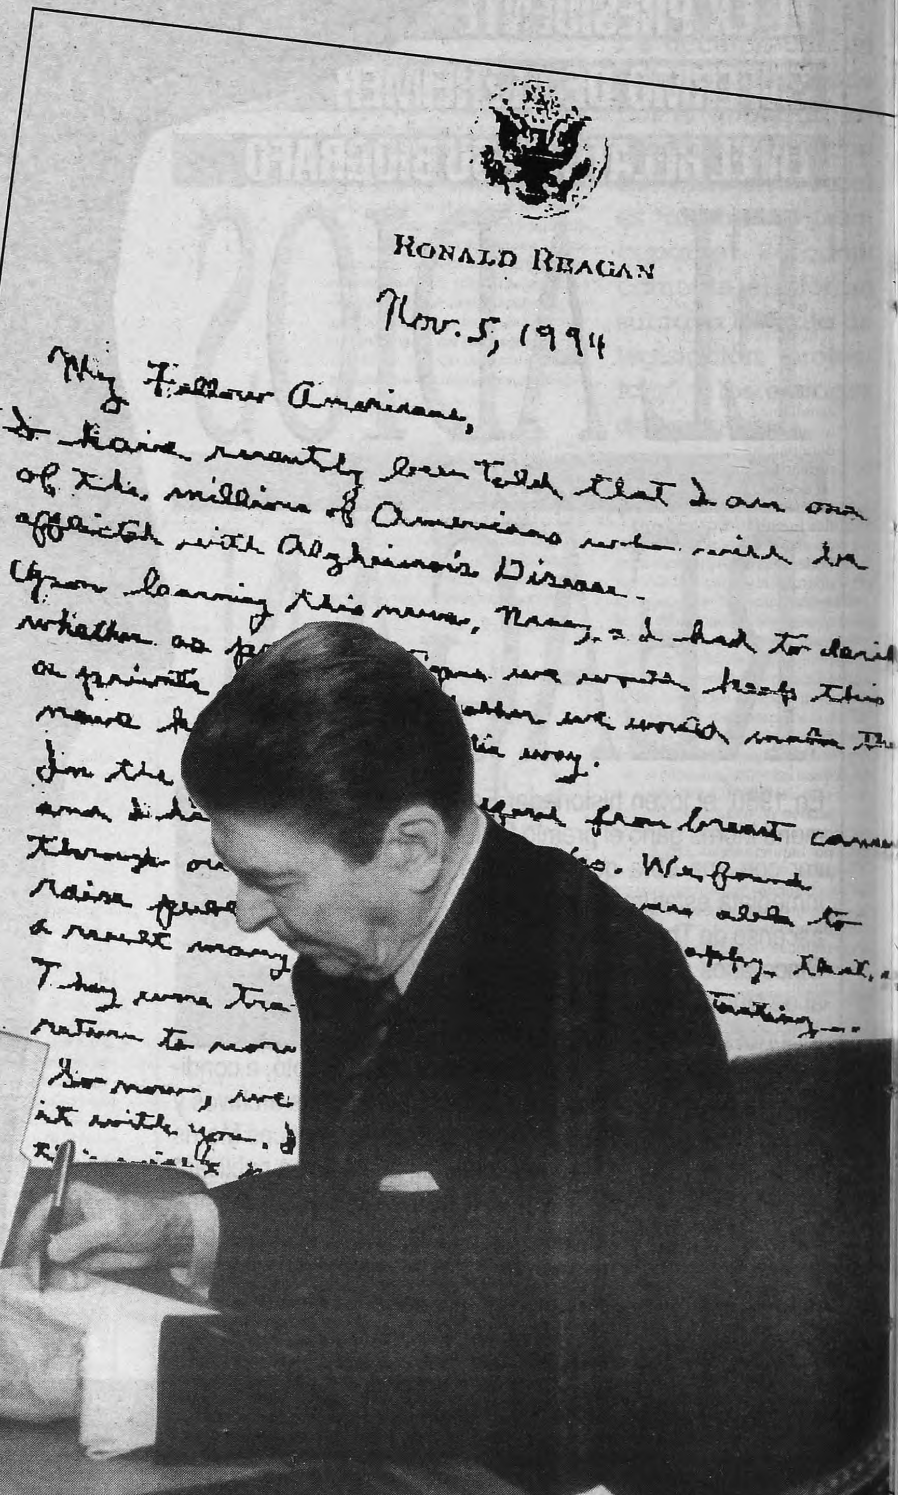 RONALD REAGAN
Nov. 5, 1994
My Fellow Americans,
I have recently been told that I am one
of the millions of Americans who will be
afflicted with Alzheimer's Disease.
Upon learning this news, Nancy & I had to decid
whether as p we would keep this
a private whether we would make the
news k lic way.
In the from breast cancer
and I ha
through ou s. We found
raise publ were able to
a result many appy that, a
They were tre testing
return to more
So now, we
it with you. I